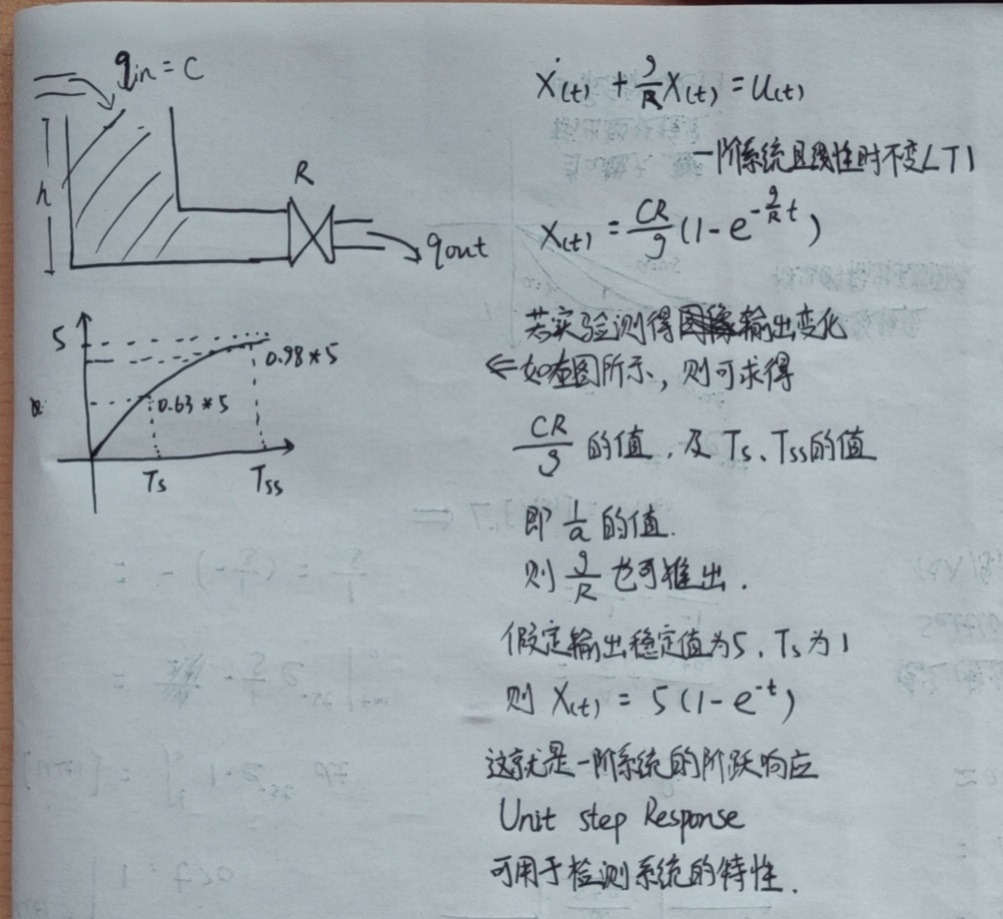 qin = C
h
R
qout
5
0.98*5
0.63*5
Ts
Tss
ẋ(t) + g/R x(t) = u(t)
一阶系统且线性时不变LTI
x(t) = CR/g (1 - e^(-g/R t))
若实验测得输出变化
⇐如左图所示,则可求得
CR/g 的值,及Ts、Tss的值
即 1/a 的值.
则 g/R 也可推出.
假定输出稳定值为5、Ts为1
则 x(t) = 5(1 - e^-t)
这就是一阶系统的阶跃响应
Unit step Response
可用于检测系统的特性.